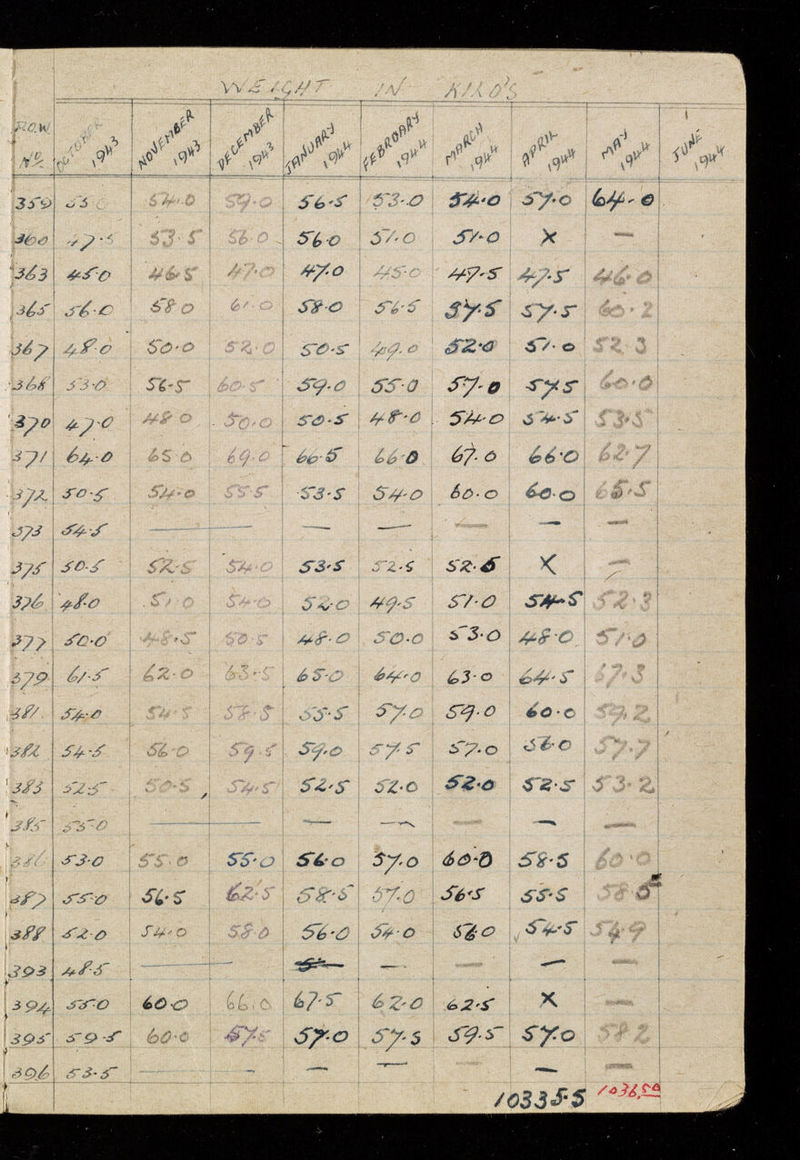 WEIGHT IN KILO'S
ROW No. OCTOBER 1943 NOVEMBER 1943 DECEMBER 1943 JANUARY 1944 FEBROARY 1944 MARCH 1944 APRIL 1944 MAY 1944 JUNE 1944
359 53 54.0 59.0 56.5 53.0 54.0 57.0 64.0
360 47.5 53.5 56.0 56.0 51.0 51.0 X —
363 45.0 46.5 47.0 47.0 45.0 47.5 47.5 46.0
365 56.0 58.0 61.0 58.0 56.5 57.5 57.5 60.2
367 48.0 50.0 52.0 50.5 49.0 52.0 51.0 52.3
368 53.0 56.5 60.5 59.0 55.0 57.0 57.5 60.0
370 47.0 48.0 50.0 50.5 48.0 54.0 54.5 53.5
371 64.0 65.0 69.0 66.5 66.0 67.0 66.0 62.7
372 50.5 54.0 55.5 53.5 54.0 60.0 60.0 65.5
373 54.5 — — — — — —
375 50.5 52.5 54.0 53.5 52.5 52.5 X —
376 48.0 51.0 54.0 52.0 49.5 51.0 54.5 52.3
377 50.0 48.5 50.5 48.0 50.0 53.0 48.0 51.0
379 61.5 62.0 63.5 65.0 64.0 63.0 64.5 67.3
381 54.0 54.5 58.5 55.5 57.0 59.0 60.0 59.2
382 54.5 56.0 59.5 59.0 57.5 57.0 56.0 57.7
383 52.5 50.5 54.5 52.5 52.0 52.0 52.5 53.2
385 55.0 — — — — — —
386 53.0 55.0 55.0 56.0 57.0 60.0 58.5 60.0
387 55.0 56.5 62.5 58.5 57.0 56.5 55.5 58.5
388 52.0 54.0 58.0 56.0 54.0 56.0 54.5 54.9
393 48.5 — — — — —
394 55.0 60.0 66.0 67.5 62.0 62.5 X —
395 59.5 60.0 57.5 57.0 57.5 59.5 57.0 58.2
396 53.5 — — — — — —
10335.5 1036,50